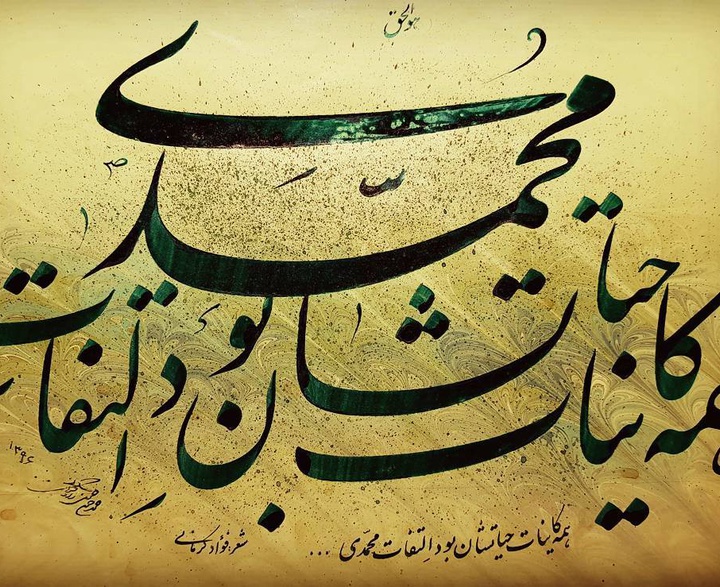 هوالحق
همه کاینات حیاتشان بود التفات محمّدی
همه کاینات حیاتشان بود التفات محمّدی ...
شعر: فؤاد کرمانی
۱۳۹۶